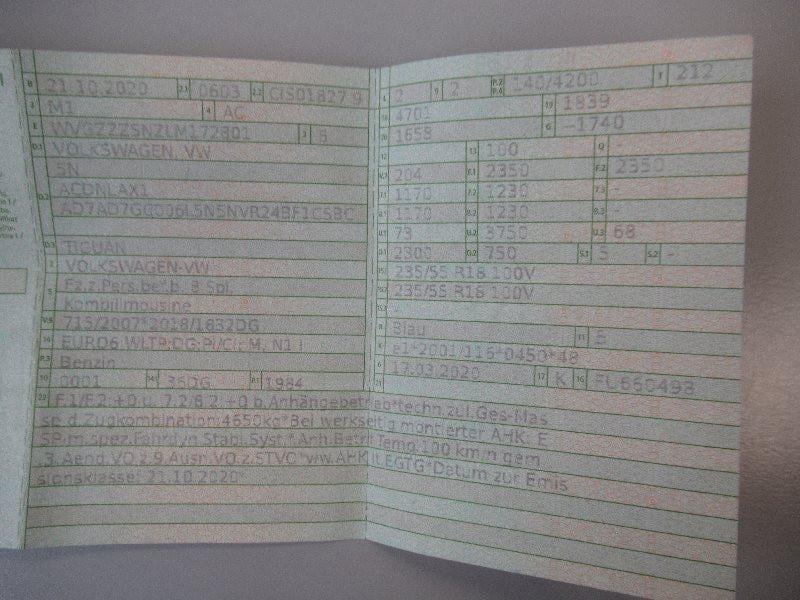 B 21.10.2020 2.1 0603 2.2 CIS01827 9
J M1 4 AC
E WVGZZZ5NZLM172801 3 6
D.1 VOLKSWAGEN, VW
5N
D.2 ACDNLAX1
D.3 TIGUAN
2 VOLKSWAGEN-VW
5 Fz.z.Pers.bef.b. 8 Spl.
Kombilimousine
V.9 715/2007*2018/1832DG
14 EURO6
P.3 Benzin
10 0001 14.1 36DG P.1 1984
L 2 9 2 P.2 P.4 140/4200 T 212
18 4701 19 1839
20 1658 G -1740
12 - 13 100 Q -
V.7 204 F.1 2350 F.2 2350
7.1 1170 7.2 1230 7.3 -
8.1 1170 8.2 1230 8.3 -
U.1 73 U.2 3750 U.3 68
O.1 2300 O.2 750 S.1 5 S.2 -
15.1 235/55 R18 100V
15.2 235/55 R18 100V
15.3 -
R Blau 11 5
K e1*2001/116*0450*48
6 17.03.2020 17 K 16
21
22 F.1/F.2 +0 u. 7.2/8.2 +0 b.Anhängebetrieb*techn.zul.Ges-Mas
se d.Zugkombination:4650kg*Bei werkseitig montierter AHK: E
SP m.spez.Fahrdyn.Stabi.Syst.*Anh.Betri Temp.100 km/h gem
.3.Aend.VO z.9.Ausn.VO.z.STVO*vw.AHK lt.EGTG*Datum zur Emis
sionsklasse: 21.10.2020*